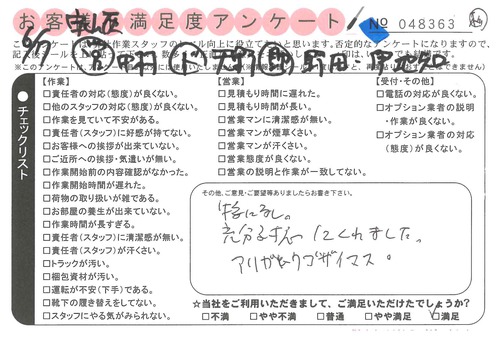 お客様満足度アンケート
№ 048363
チェックリスト
【作業】
□責任者の対応(態度)が良くない。
□他のスタッフの対応(態度)が良くない。
□作業を見ていて不安がある。
□責任者(スタッフ)に好感が持てない。
□お客様への挨拶が出来ていない。
□ご近所への挨拶・気遣いが無い。
□作業開始前の内容確認がなかった。
□作業開始時間が遅れた。
□荷物の取り扱いが雑である。
□お部屋の養生が出来ていない。
□作業時間が長すぎる。
□責任者(スタッフ)に清潔感が無い。
□責任者(スタッフ)が汗くさい。
□トラックが汚い。
□梱包資材が汚い。
□運転が不安(下手)である。
□靴下の履き替えをしてない。
□スタッフにやる気がみられない。
【営業】
□見積もり時間に遅れた。
□見積もり時間が長い。
□営業マンに清潔感が無い。
□営業マンが煙草くさい。
□営業マンが汗くさい。
□営業態度が良くない。
□営業の説明と作業が一致してない。
【受付・その他】
□電話の対応が良くない。
□オプション業者の説明・作業が良くない。
□オプション業者の対応(態度)が良くない。
その他、ご意見・ご要望等ありましたらお書き下さい。
特になし。
くれました。
アリガトウゴザイマス。
☆当社をご利用いただきまして、ご満足いただけたでしょうか?
□不満 □やや不満 □普通 □やや満足 □満足